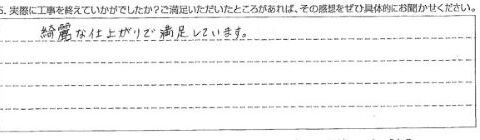 5. 実際に工事を終えていかがでしたか？ご満足いただいたところがあれば、その感想をぜひ具体的にお聞かせください。
綺麗な仕上がりで満足しています。